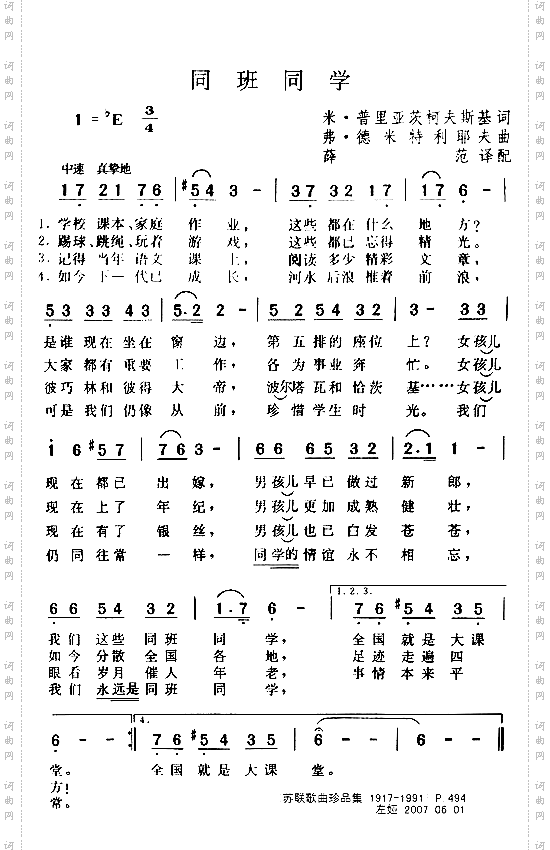 同班同学
1 = ♭E 3/4
米·普里亚茨柯夫斯基词
弗·德米特利耶夫曲
薛范译配
中速 真挚地
1 7 2 1 7 6 | #5 4 3 - | 3 7 3 2 1 7 | 1 7 6 - |
1. 学校 课本、家庭 作业， 这些 都在 什么 地方？
2. 踢球、跳绳、玩着 游戏， 这些 都已 忘得 精光。
3. 记得 当年 语文 课上， 阅读 多少 精彩 文章，
4. 如今 下一代已 成长， 河水 后浪 推着 前浪，
5 3 3 3 4 3 | 5. 2 2 - | 5 2 5 4 3 2 | 3 - 3 3 |
是谁 现在 坐在 窗边， 第五 排的 座位 上？ 女孩儿
大家 都有 重要 工作， 各为 事业 奔忙。 女孩儿
彼巧林和彼得 大帝， 波尔塔瓦和恰茨 基……女孩儿
可是 我们 仍像 从前， 珍惜 学生 时光。 我们
1 6 #5 7 | 7 6 3 - | 6 6 6 5 3 2 | 2. 1 1 - |
现在 都已 出嫁， 男孩儿早已 做过 新郎，
现在 上了 年纪， 男孩儿更加 成熟 健壮，
现在 有了 银丝， 男孩儿也已 白发 苍苍，
仍同 往常 一样， 同学的情谊 永不 相忘，
1. 2. 3.
6 6 5 4 3 2 | 1. 7 6 | 7 6 #5 4 3 5 |
我们 这些 同班 同学， 全国 就是 大课
如今 分散 全国 各地， 足迹 走遍 四
眼看 岁月 催人 年老， 事情 本来 平
我们 永远是同班 同学，
4.
6 - - :| 7 6 #5 4 3 5 | 6 - - | 6 - - |
堂。 全国 就是 大课 堂。
方！
常。
苏联歌曲珍品集 1917-1991 P.494
左娅 2007 06 01
词曲网
词曲网